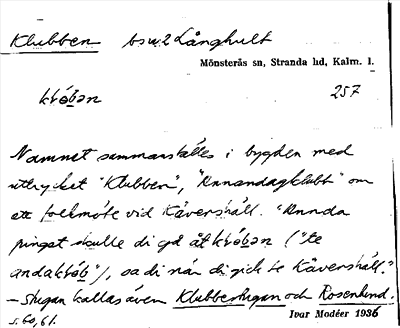 Klubben bsu2 Långhult
Mönsterås sn, Stranda hd, Kalm. l.
257
Namnet sammanställes i bygden med
uttrycket "Klubben", "Annandagklubb" om
ett folkmöte vid Kävershäll. "Annda
pingst skulle di gå åt ("te
"), sa di när di gick te Kävershäll."
– Stugan kallas även Klubbestugan och Rosenlund.
s. 60, 61. Ivar Modéer 1936